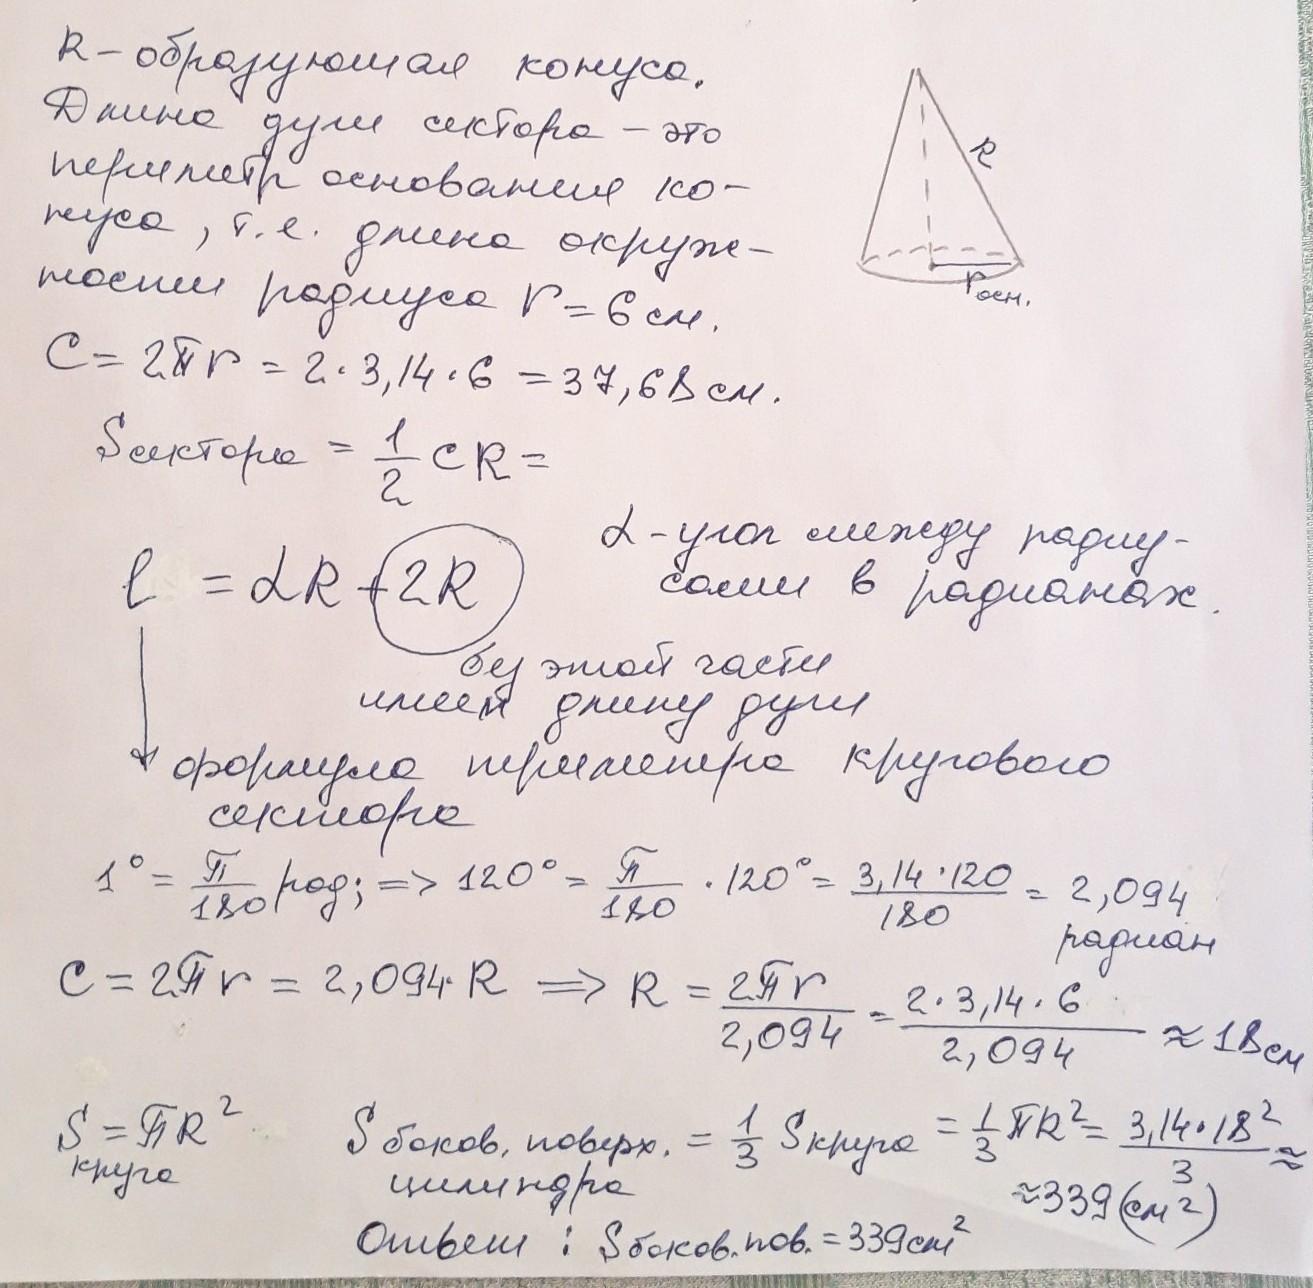 R – образующая конуса.
Длина дуги сектора – это
периметр основания ко-
нуса, т.е. длина окруж-
ности радиуса r = 6 см.
R
rосн.
C = 2πr = 2·3,14·6 = 37,68 см.
Sсектора = 1/2 CR =
α - угол между радиу-
сами в радианах.
l = αR + 2R
без этой части
имеем длину дуги
формула периметра кругового
сектора
1° = π/180 рад; => 120° = π/180 · 120° = 3,14·120/180 = 2,094
радиан
C = 2πr = 2,094·R => R = 2πr/2,094 = 2·3,14·6/2,094 ≈ 18см
S круга = πR² S боков. поверх. цилиндра = 1/3 Sкруга = 1/3 πR² = 3,14·18²/3 ≈
≈ 339 (см²)
Ответ : Sбоков.пов. = 339см²